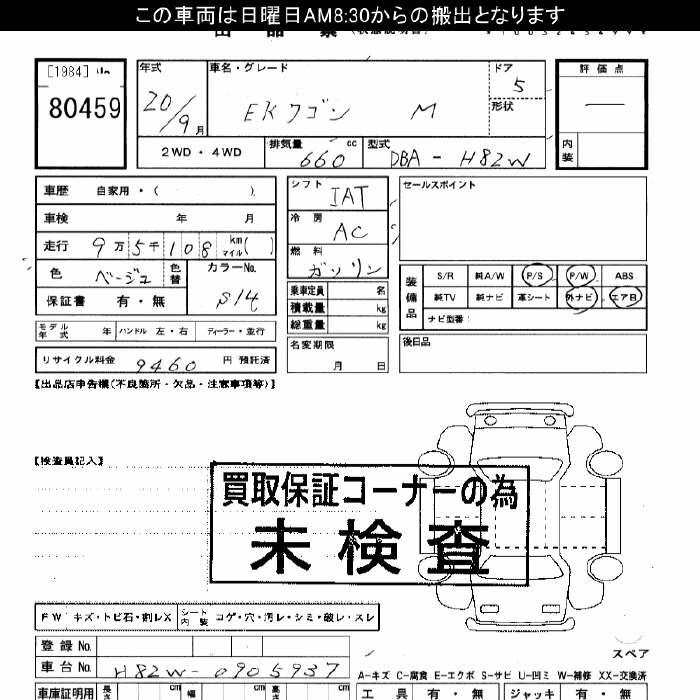 この車両は日曜日AM8:30からの搬出となります
[1984]
80459
年式
20/9月
車名・グレード
EKワゴン M
ドア
5
形状
評価点
—
内装
2WD・4WD
排気量
660 cc
型式
DBA - H82W
車歴 自家用・( ).
車検 年 月
走行 9万5千108 km マイル( )
色 ベージュ
色替
カラーNo.
S14
保証書 有・無
モデル年式 年
ハンドル 左・右
ディーラー・並行
リサイクル料金 9460 円 預託済
シフト
IAT
冷房
AC
燃料
ガソリン
乗車定員 名
積載量 kg
総重量 kg
名変期限
月 日
セールスポイント
装備品
S/R 純A/W P/S P/W ABS
純TV 純ナビ 革シート 外ナビ エアB
ナビ型番:
後日品
【出品店申告欄(不良箇所・欠品・注意事項等)】
【検査員記入】
買取保証コーナーの為
未検査
FW キズ・トビ石・割レX
シート内装 コゲ・穴・汚レ・シミ・破レ・スレ
登録No.
車台No. H82W-0905937
スペア
A-キズ C-腐食 E-エクボ S-サビ U-凹ミ W-補修 XX-交換済
車庫証明用 長さ cm 幅 cm 高さ cm
工具 有・無 ジャッキ 有・無